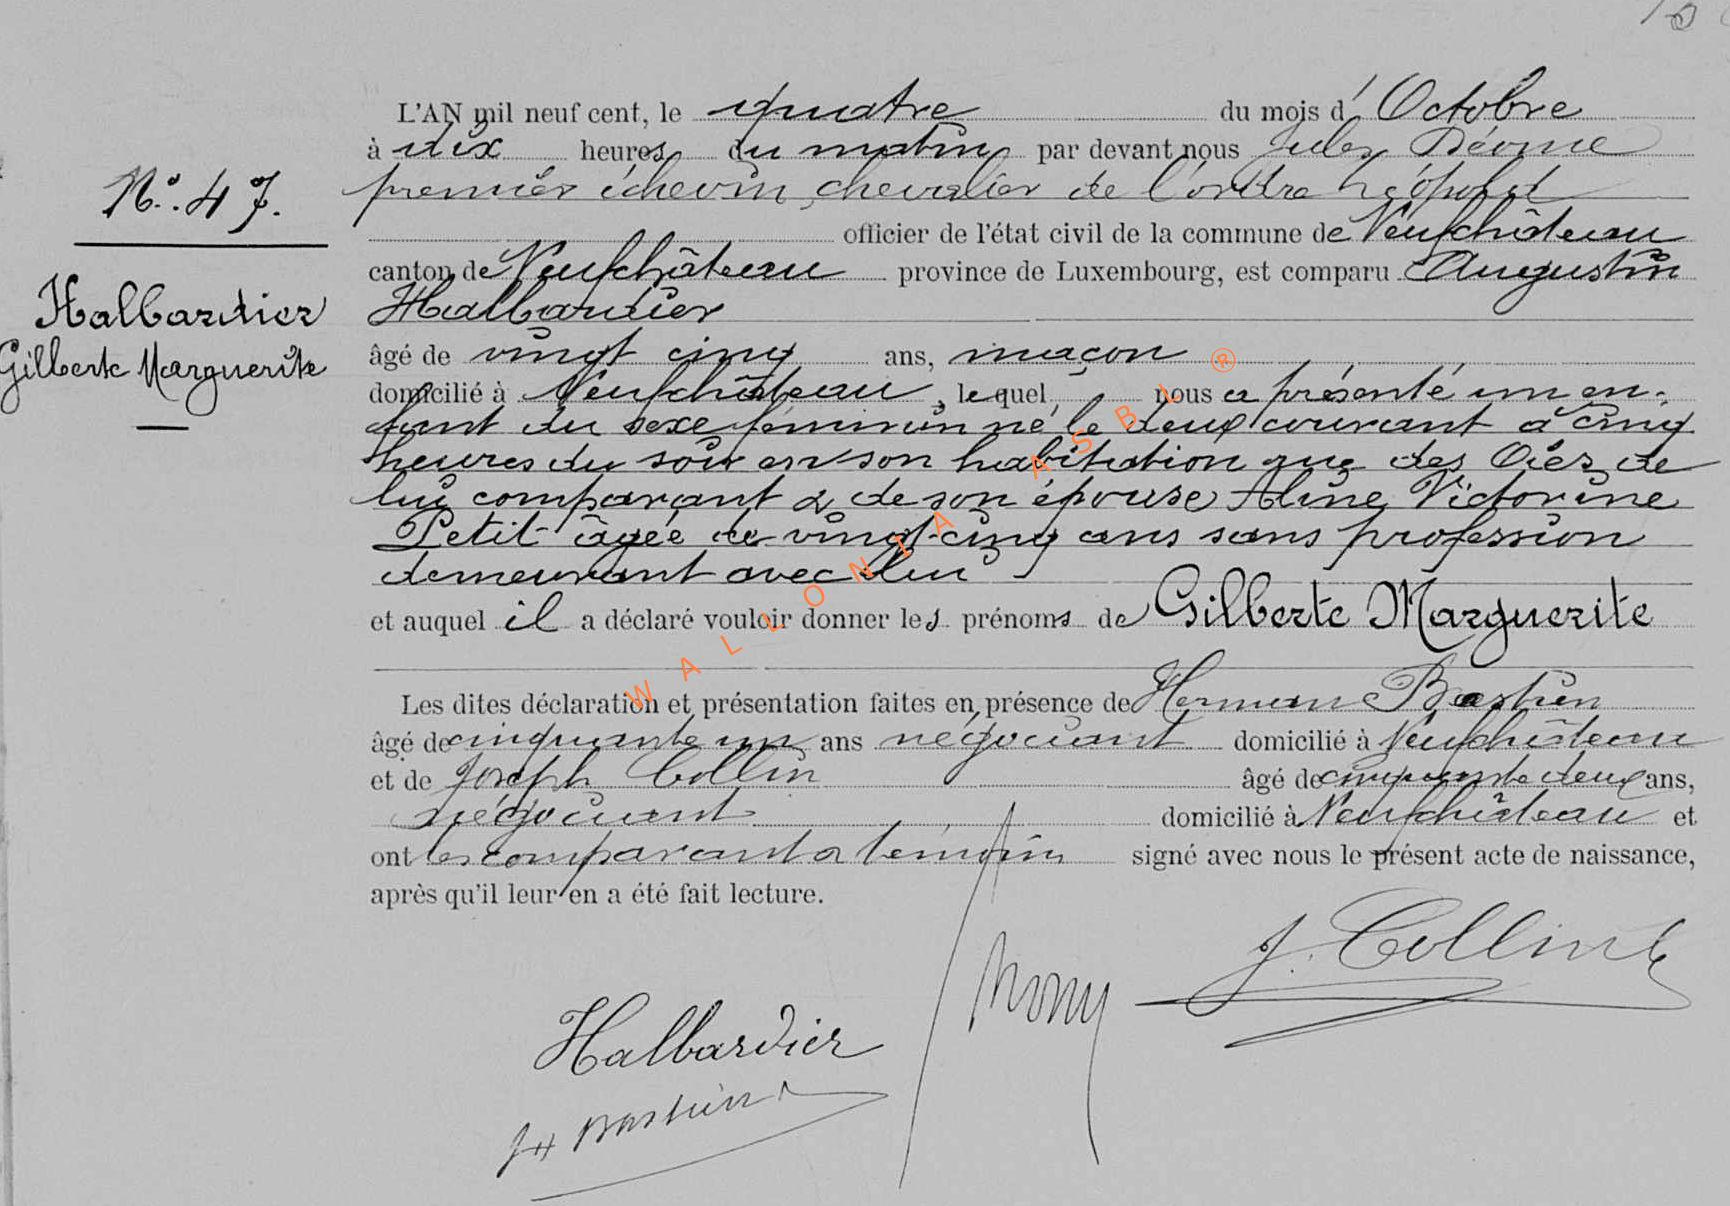 L'AN mil neuf cent, le quatre du mois d'Octobre
à dix heures du matin par devant nous Jules
N.º 47. premier échevin, chevalier de l'ordre Léopold
officier de l'état civil de la commune de Neufchâteau
canton de Neufchâteau province de Luxembourg, est comparu Augustin
Halbardier
Halbardier
Gilberte Marguerite
âgé de vingt cinq ans, maçon
domicilié à Neufchâteau, lequel nous a présenté un en-
fant du sexe féminin né le deux courant à cinq
heures du soir en son habitation rue des Oies, de
lui comparant & de son épouse Aline Victorine
Petit âgée de vingt-cinq ans sans profession
demeurant avec lui
et auquel il a déclaré vouloir donner les prénoms de Gilberte Marguerite
Les dites déclaration et présentation faites en présence de Herman Bastin
âgé de cinquante un ans négociant domicilié à Neufchâteau
et de Joseph Collin âgé de cinquante deux ans,
négociant domicilié à Neufchâteau et
ont les comparant & témoin signé avec nous le présent acte de naissance,
après qu'il leur en a été fait lecture.
J. Collin
Halbardier
WALLONIA ASBL ®